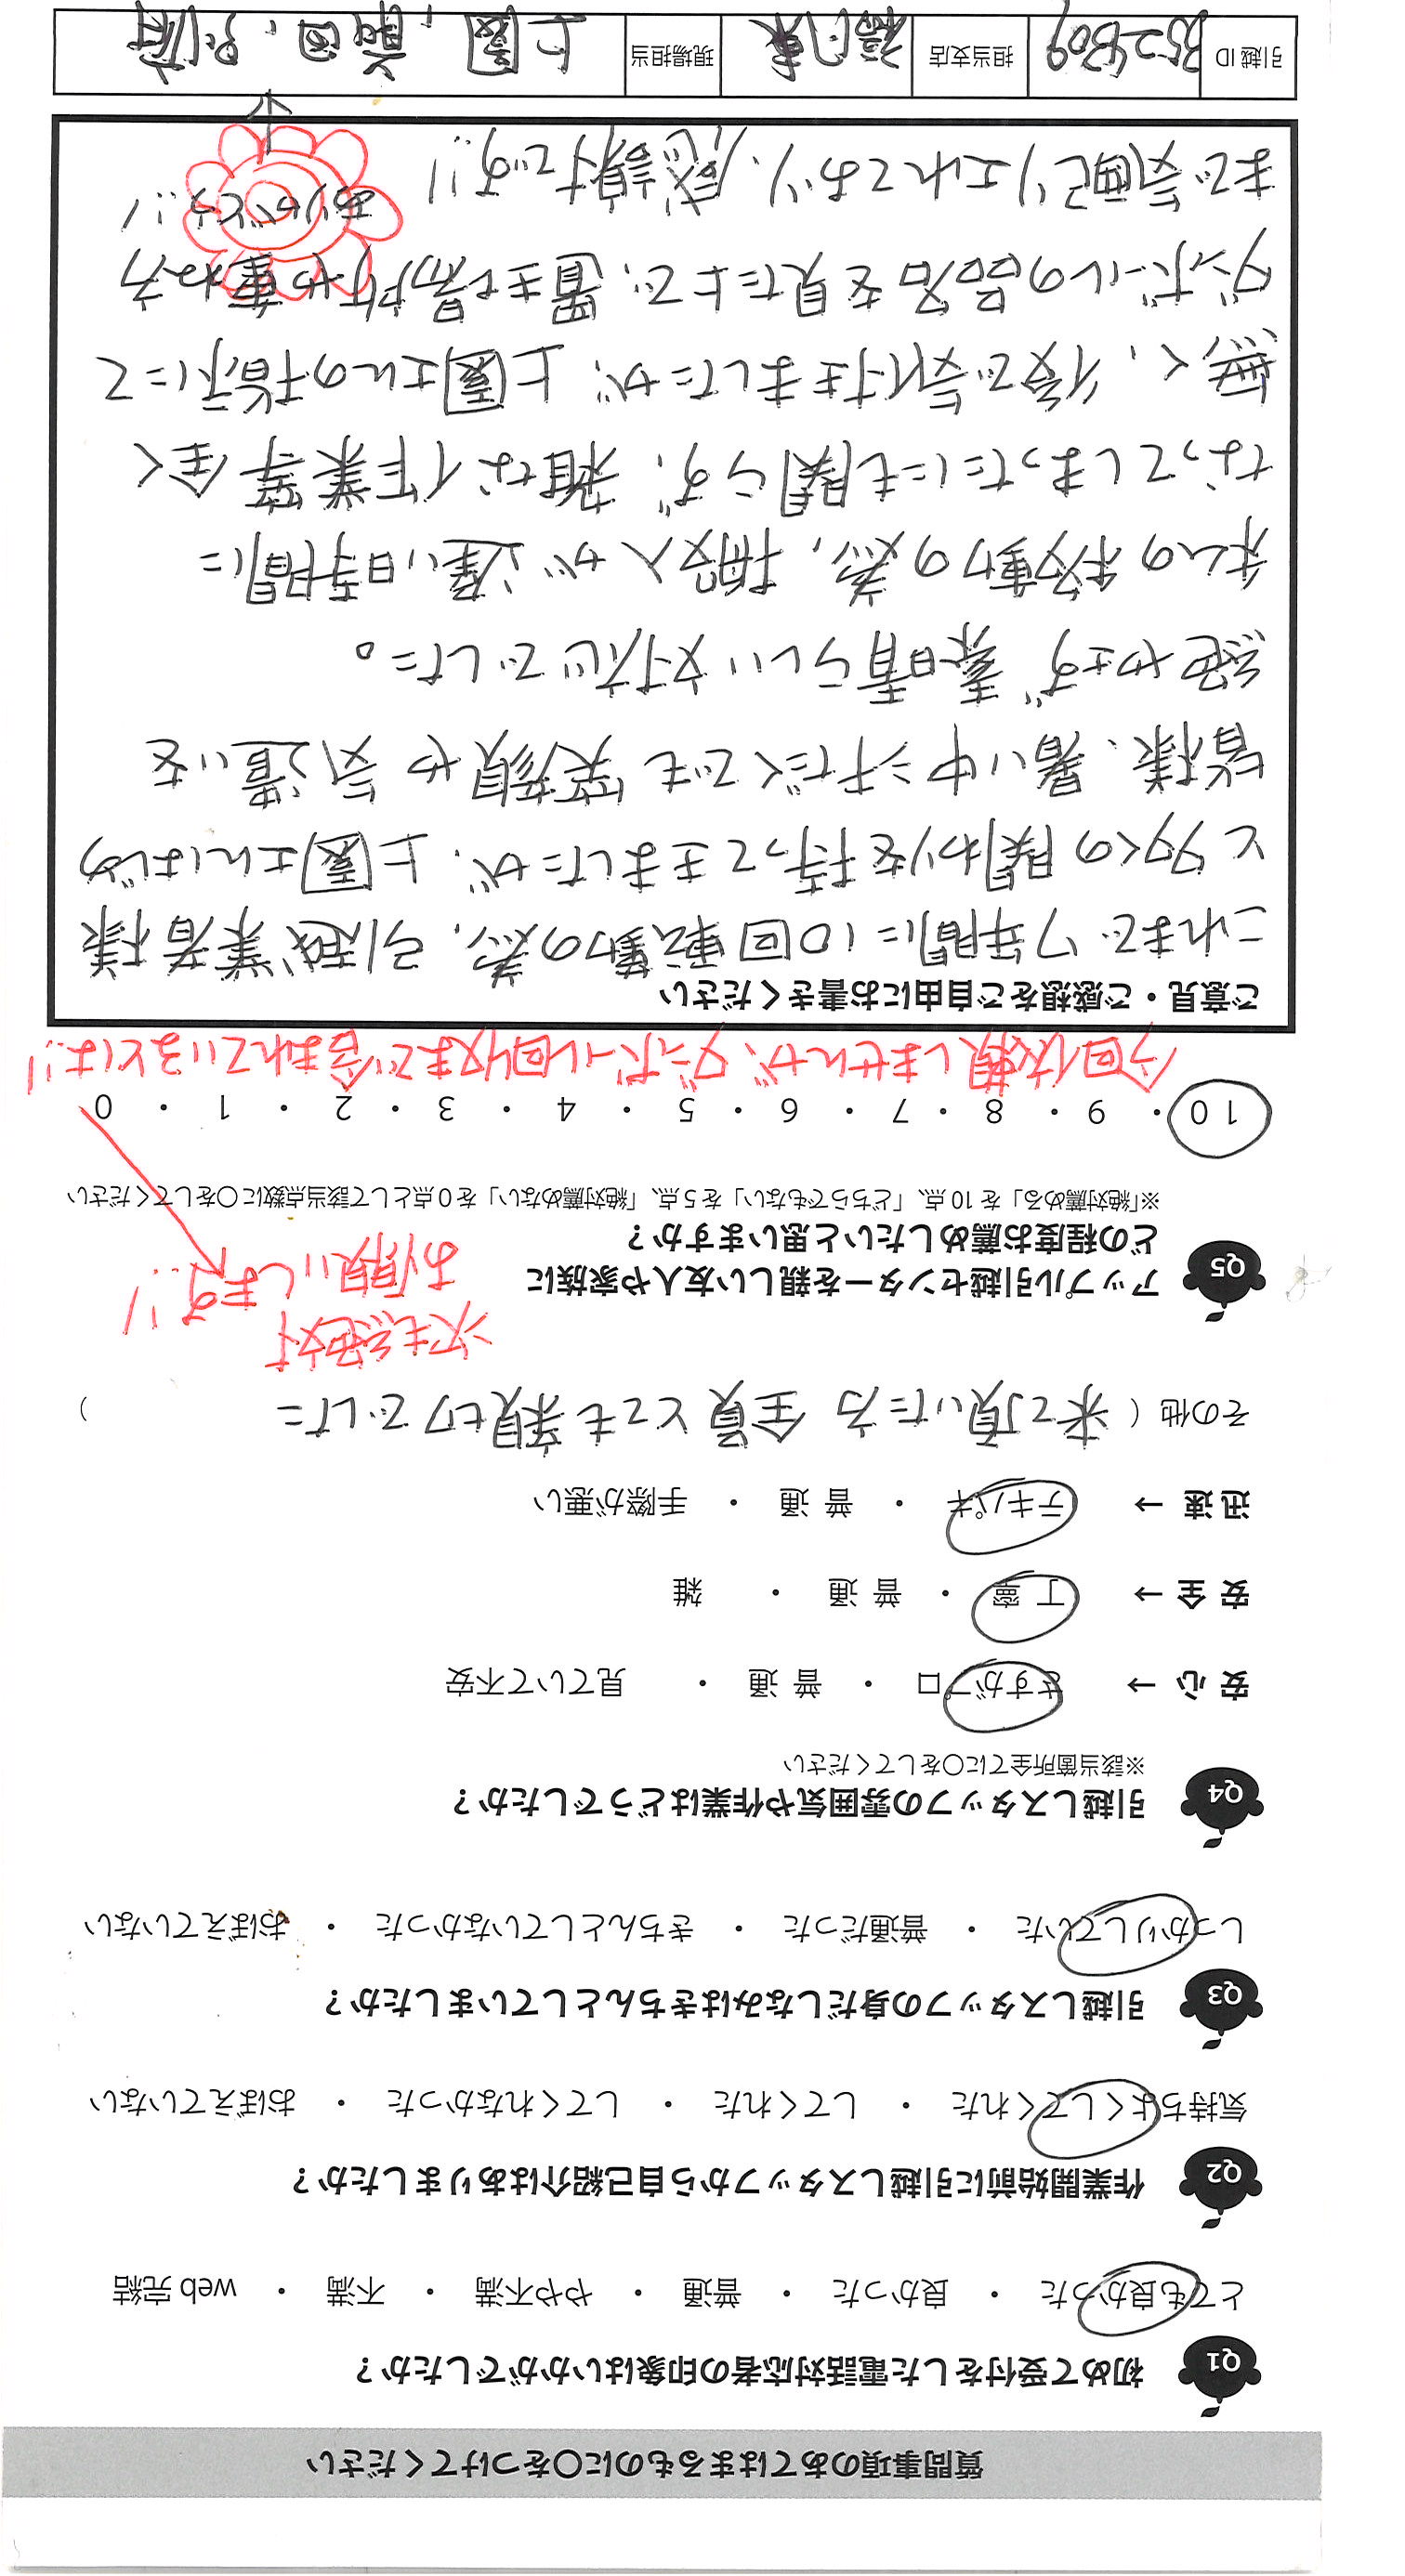 質問事項のあてはまるものに○をつけてください
Q1 初めて受付をした電話対応者の印象はいかがでしたか?
とても良かった ・ 良かった ・ 普通 ・ やや不満 ・ 不満 ・ web 完結
Q2 作業開始前に引越しスタッフから自己紹介はありましたか?
気持ちよくしてくれた ・ してくれた ・ してくれなかった ・ おぼえていない
Q3 引越しスタッフの身だしなみはきちんとしていましたか?
しっかりしていた ・ 普通だった ・ きちんとしていなかった ・ おぼえていない
Q4 引越しスタッフの雰囲気や作業はどうでしたか?
※該当箇所全てに○をしてください
安 心 → さすがプロ ・ 普 通 ・ 見ていて不安
安 全 → 丁 寧 ・ 普 通 ・ 雑
迅 速 → テキパキ ・ 普 通 ・ 手際が悪い
その他 ( 来て頂いた方 全員とても親切でした )
次も絶対
お願いします!!
Q5 アップル引越センターを親しい友人や家族に
どの程度お薦めしたいと思いますか?
※「絶対薦める」を 10 点、「どちらでもない」を 5 点、「絶対薦めない」を 0 点として該当点数に○をしてください
10 ・ 9 ・ 8 ・ 7 ・ 6 ・ 5 ・ 4 ・ 3 ・ 2 ・ 1 ・ 0
今回依頼しませんが、ダンボール回収まで含まれているとは!!
ご意見・ご感想をご自由にお書きください
これまで7年間に10回転勤の為、引越業者様
と多くの関わりを持って来ましたが、上園さんはじめ
皆様、暑い中汗だくでも笑顔や気遣いを
絶やさず素晴らしい対応でした。
私の移動の為、搬入が遅い時間に
なってしまったにも関らず、雑な作業等全く
無く、後で気付きましたが、上園さんの指示にて
ダンボールの品名を見た上で、置き場所や重ね方
まで気配りされており、感謝です!!
ありがとう!!
引越 ID 担当支店 福岡東 現場担当 上園、前田、別府